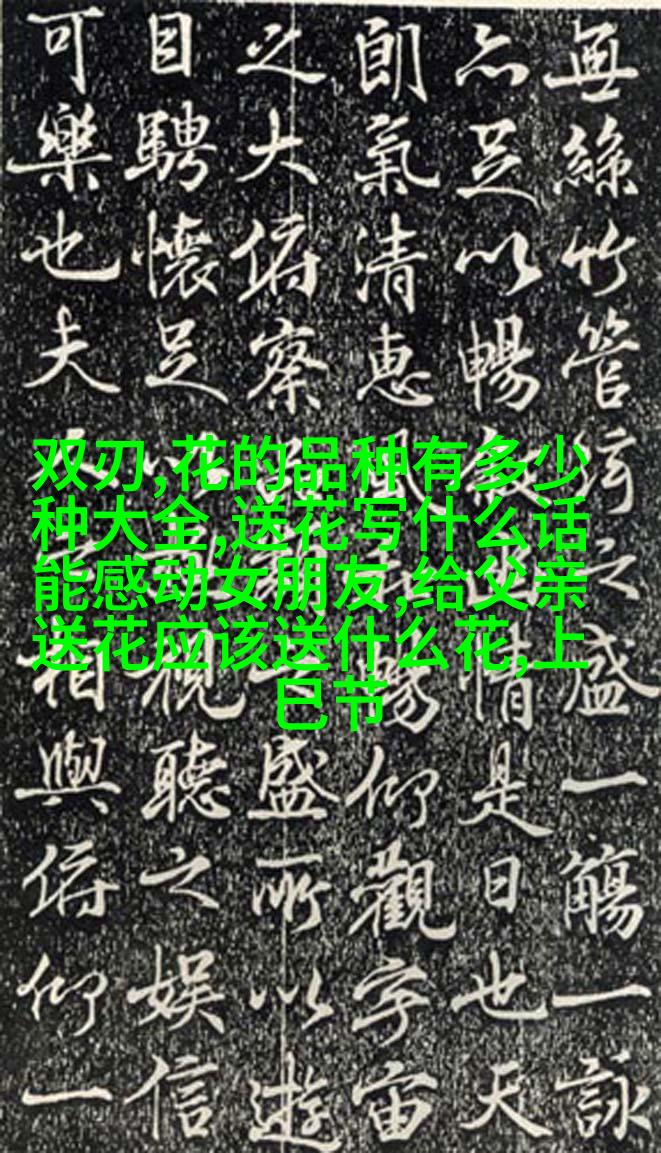 無絲竹管絃之盛一觴一詠
亦足以暢情是日也天
朗氣清惠暢仰觀宇宙
之大俯察盛所以遊
目騁懷足視聽之娛信
可樂也夫相與俯仰一
双刃,花的品种有多少
种大全,送花写什么话
能感动女朋友,给父亲
送花应该送什么花,上
巳节